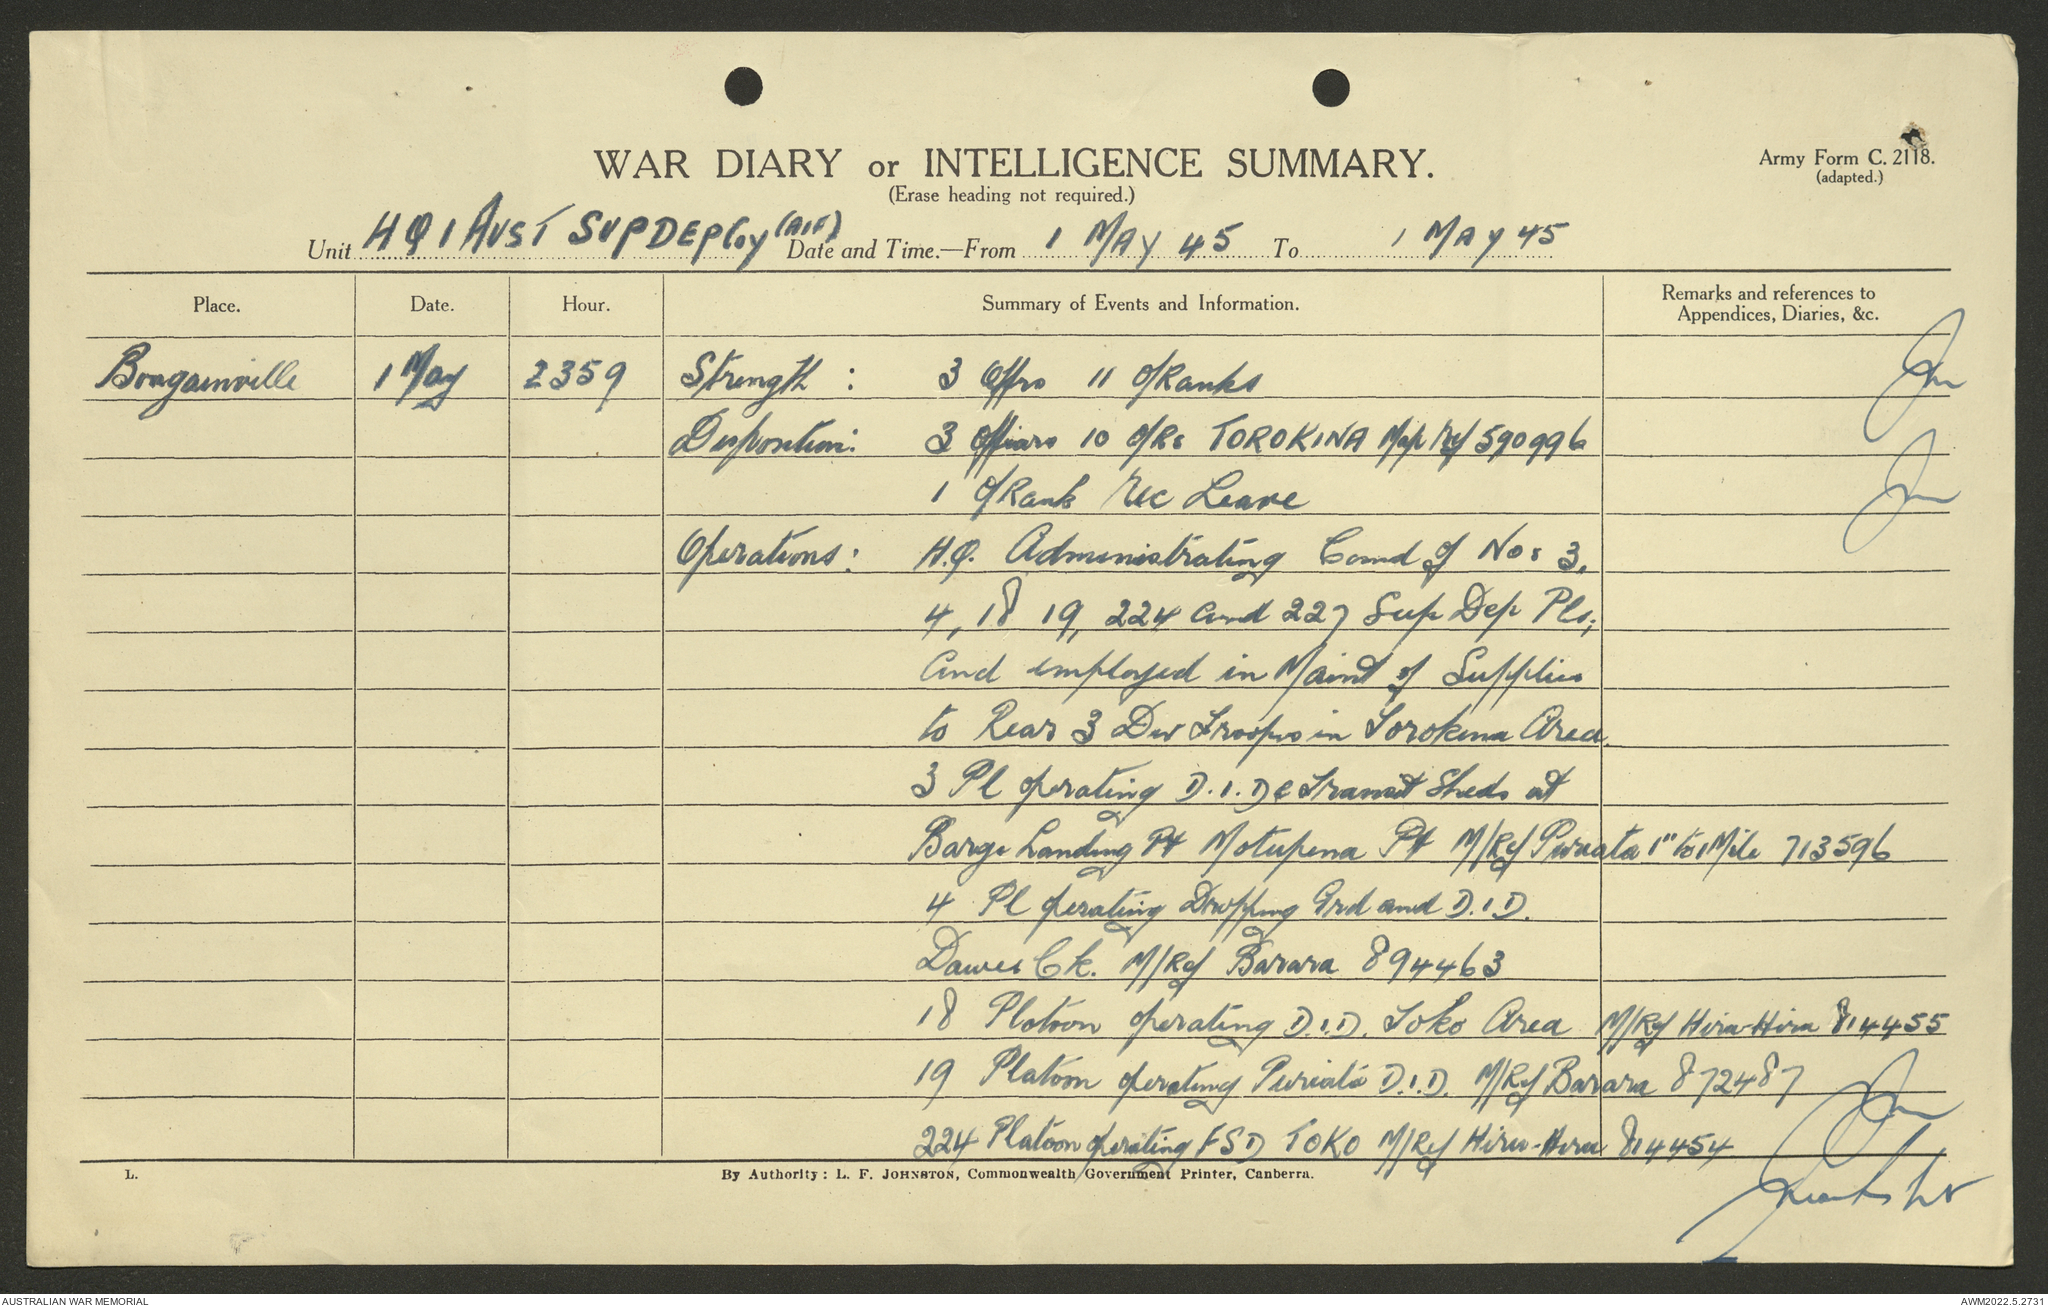 WAR DIARY or INTELLIGENCE SUMMARY.
(Erase heading not required.)
Army Form C. 2118.
(adapted.)
Unit HQ 1 AUST SUP DEP Coy (AIF) Date and Time.—From 1 MAY 45 To 1 MAY 45
Place. Date. Hour. Summary of Events and Information. Remarks and references to
Appendices, Diaries, &c.
Bougainville 1 May 2359 Strength : 3 Offrs 11 O/Ranks
Disposition: 3 Officers 10 O/Rs TOROKINA Map Ref 590996
1 O/Rank Rec Leave
Operations: H.Q. Administrating Comd of Nos 3,
4, 18 19, 224 and 227 Sup Dep Pls;
and employed in Maint of Supplies
to Rear 3 Div Troops in Torokina Area.
3 Pl operating D.I.D & Transit Sheds at
Barge Landing Pt Motupena Pt M/Ref Puriata 1" to 1 Mile 713596
4 Pl operating Dropping Grd and D.I.D.
Dawes Ck. M/Ref Barara 894463
18 Platoon operating D.I.D. Toko Area M/Ref Hiru-Hiru 814455
19 Platoon operating Puriata D.I.D. M/Ref Barara 872487
224 Platoon operating FSD TOKO M/Ref Hiru-Hiru 814454
L. By Authority : L. F. JOHNSTON, Commonwealth Government Printer, Canberra.
AUSTRALIAN WAR MEMORIAL AWM2022.5.2731